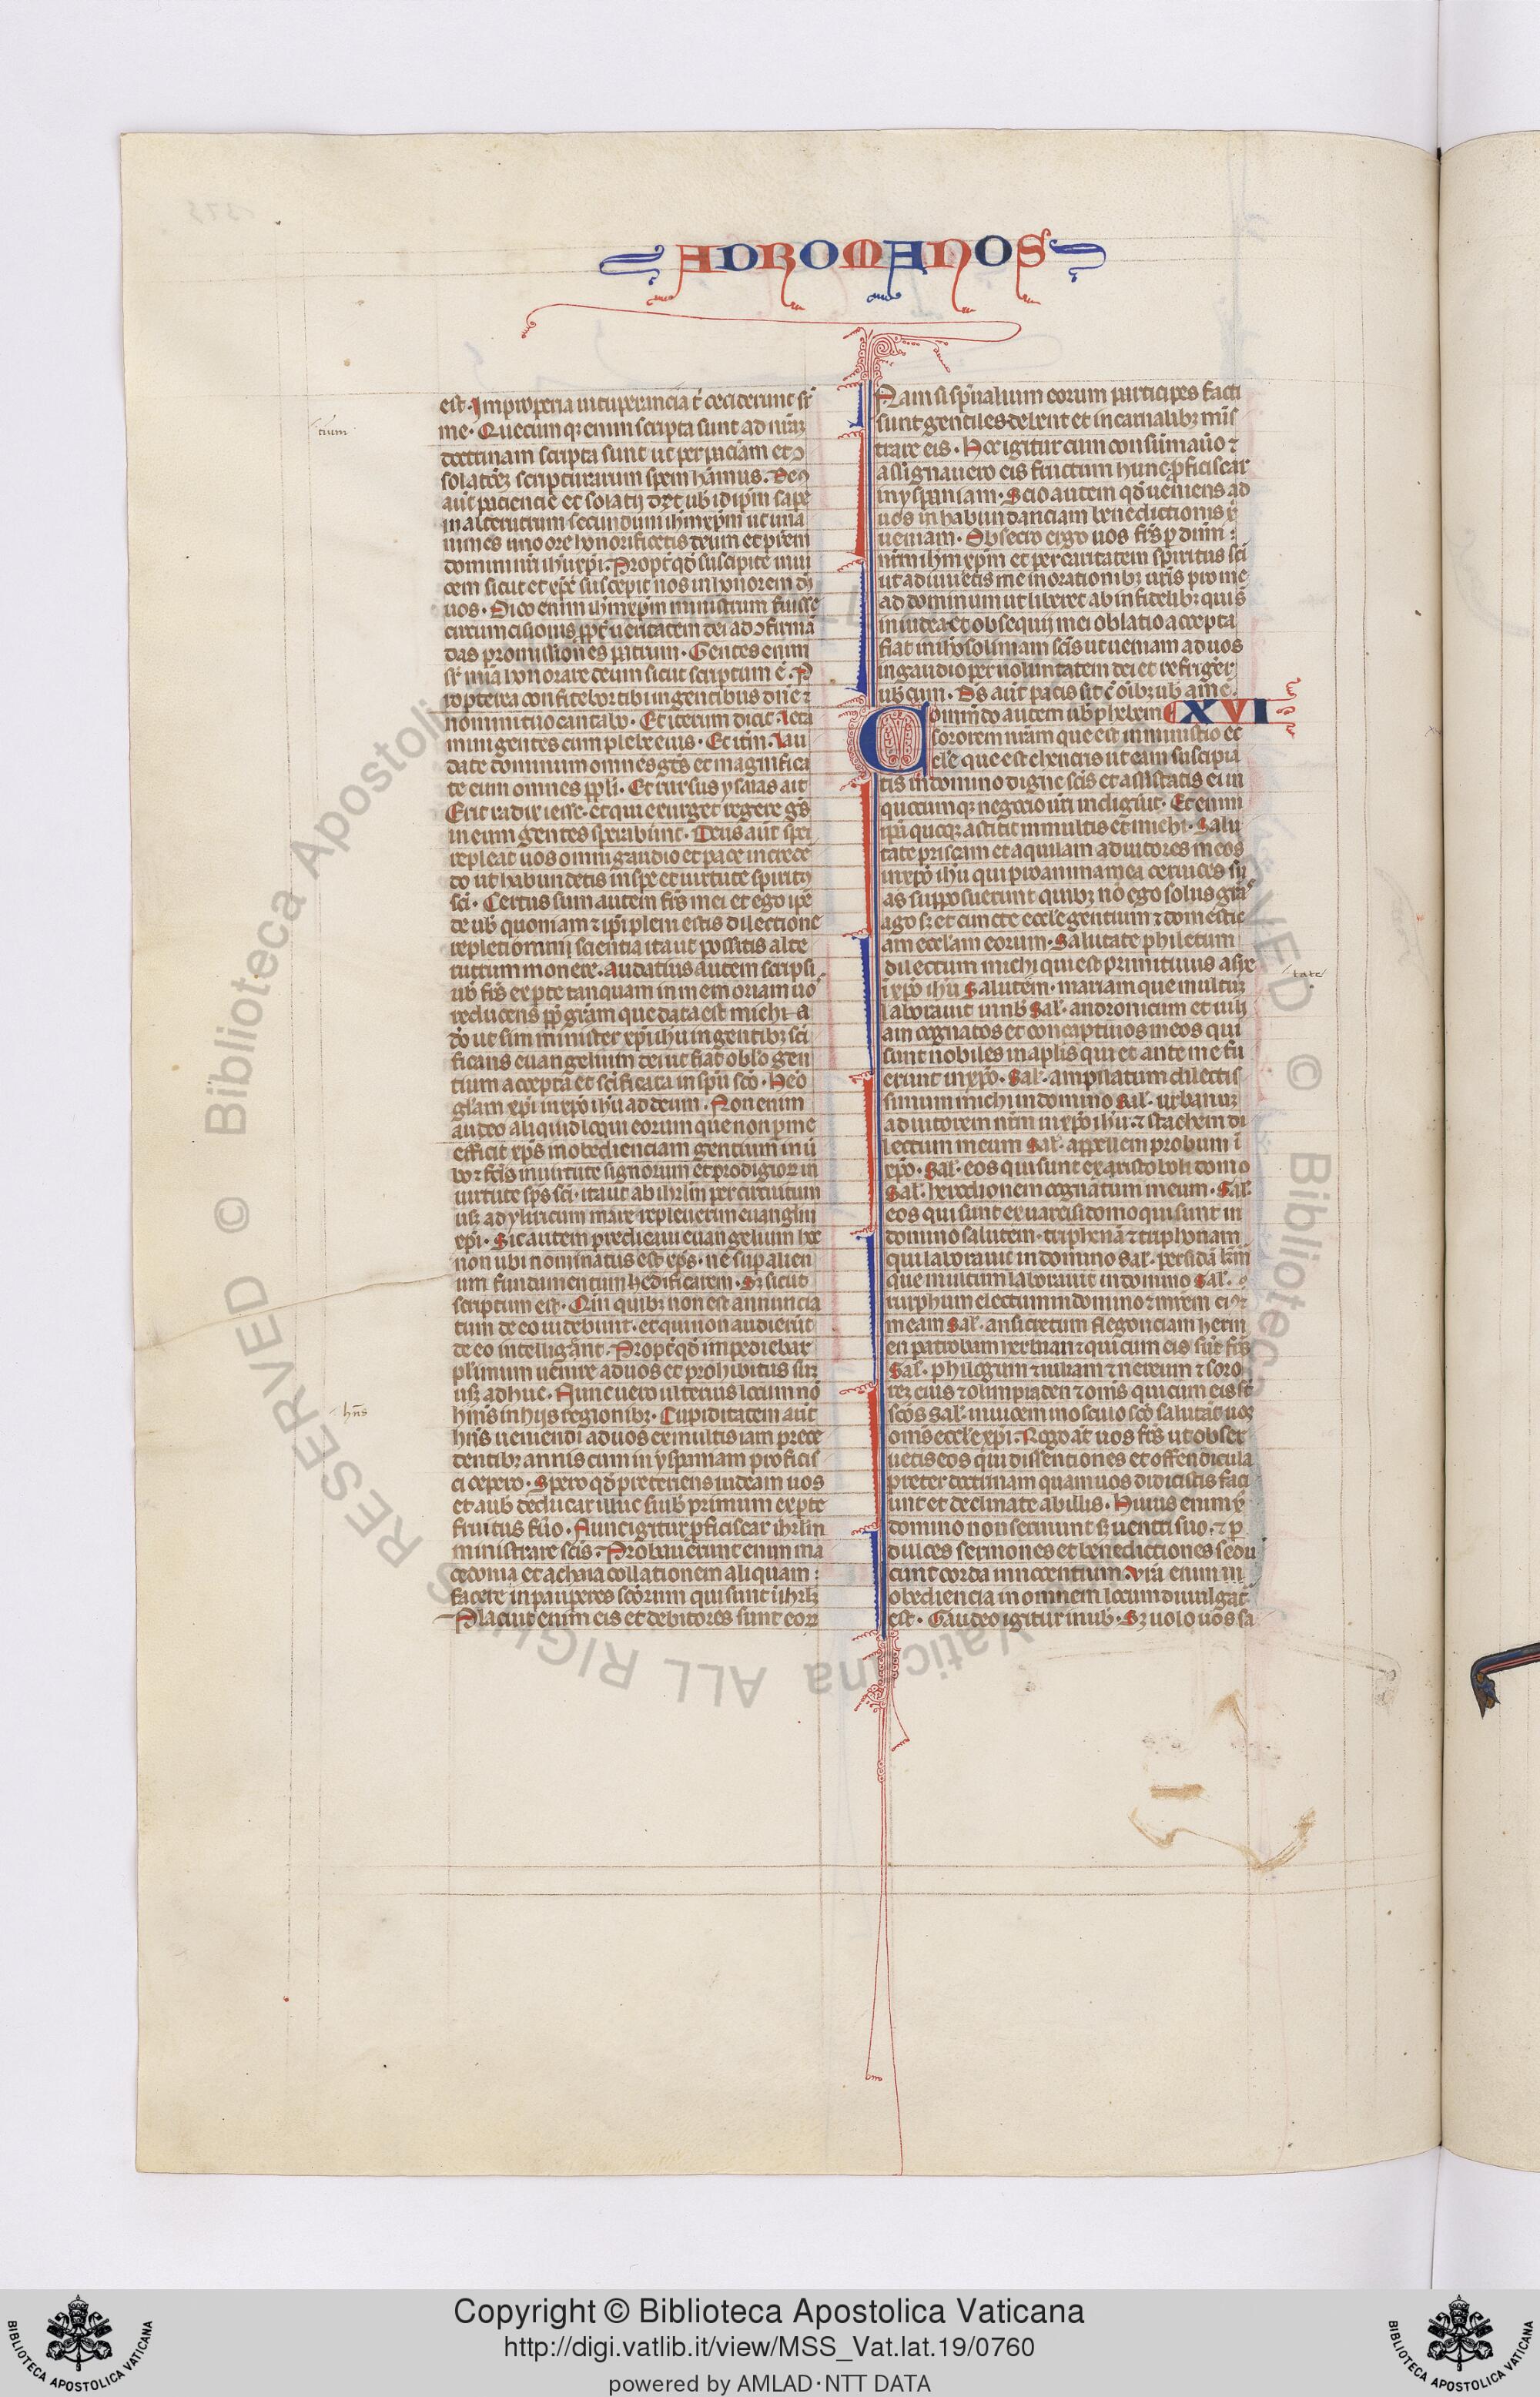 AD ROMANOS
est. Improperia vituperancia t̄ ceciderunt sr̄
me. Quecumqȝ enim scripta sunt ad nr̄aȝ
doctrinam scripta sunt ut per paciam et ꝯ
solatōeȝ scripturarum spem hēamus. Deꝰ
aut̄ paciencie et solatij det ub̄ idip̄m sape
in alterutrum secundum ihm xp̄m ut una
nimes uno ore honorificetis deum et pr̄em
domini nr̄i ihu xp̄i. Propt̄ qd̄ suscipite inui
cem sicut et xp̄c suscepit nos in honorem dī
uos. Dico enim ihm xp̄m ministrum fuisse
circumcisionis ꝓpt̄ ueritatem dei ad ꝯfirmā
das promissiones patrum. Gentes enim
sr̄ mīa honorare deum sicut scriptum ē. P
ropterea confitebor tibi in gentibus dn̄e ⁊
nomini tuo cantabo. Et iterum dicit. Leta
mini gentes cum plebe eius. Et itm̄. Lau
date dominum omnes gn̄s et magnifica
te eum omnes pp̄li. Et rursus ysaias ait
Erit radix iesse. et qui exurget regere gn̄s
in eum gentes sperabunt. Deus aut̄ spei
repleat uos omni gaudio et pace in crede
do ut habundetis in spe et uirtute spiritꝰ
sc̄i. Certus sum autem fr̄s mei et ego ip̄e
de ub̄ quoniam ⁊ ip̄i pleni estis dilectione
repleti omni scientia ita ut possitis alte
rutrum monere. Audatius autem scripsi
ub̄ fr̄s ex ꝑte tanquam in memoriam uo
reducens ꝓp̄ gr̄am que data est michi a
dō ut sim minister xp̄i ihu in gentibȝ sc̄i
ficans euangelium dei ut fiat obl̄o gen
tium accepta et sc̄ificata in sp̄u sc̄o. Heō
gl̄am xp̄i in xp̄o ihu ad deum. Non enim
audeo aliquid loqui eorum que non ꝑ me
efficit xp̄s in obedienciam gentium in ū
bo ⁊ fc̄is in uirtute signorum et prodigioꝝ in
uirtute sp̄s sc̄i. ita ut ab ihrlm̄ per circuitum
usȝ ad yliricum mare repleuerim euangl̄iū
xp̄i. Sic autem predicaui euangelium hoc
non ubi nominatus est xp̄s. ne sup̄ alien
um fundamentum hedificarem. Sȝ sicut
scriptum est. Qm̄ quibȝ non est annuncia
tum de eo uidebunt. et qui non audierūt
de eo intelligent. Propt̄ qd̄ impediebar
pl̄imum uenire ad uos et prohibitus suȝ
usȝ adhuc. Nunc uero ulterius locum nō
hn̄s in hijs regionibȝ. Cupiditatem aut̄
hn̄s ueniendi ad uos ex multis iam prece
dentibȝ annis cum in yspaniam proficis
ci cepero. Spero qd̄ preteriens uideam uos
et a ub̄ deducar illuc si uob̄ primum ex ꝑte
fruitus fūo. Nunc igitur ꝓficiscar ihrlm̄
ministrare sc̄is. Probauerunt enim ma
cedonia et achaia collationem aliquam
facere in pauperes sc̄orum qui sunt ī ihrlȝ
Placuit enim eis et debitores sunt eoꝝ
tium
hn̄s
Nam si sp̄ualium eorum participes facti
sunt gentiles debent et in carnalibȝ mīs
trare eis. Hoc igitur cum consūmauō ⁊
assignauero eis fructum hunc ꝓficiscar
in yspaniam. Scio autem qd̄ ueniens ad
uos in habundanciam benedictionis xp̄
ueniam. Obsecro ergo uos fr̄s ꝑ dūm
nr̄m ihm xp̄m et per caritatem spiritus sc̄i
ut adiuuetis me in orationibȝ ur̄is pro me
ad dominum ut liberer ab infidelibȝ qui s̄
in iudea. et obsequij mei oblatio accepta
fiat in ihrosolimam sc̄is ut ueniam ad uos
in gaudio per uoluntatem dei et refriger
ub̄cum. Ds̄ aut̄ pacis sit c̄ oīb̄ ub̄ amē.
XVI
Commdo autem ub̄ phebem
sororem nr̄am que est in ministio ec
cl̄e que est chencris ut eam suscipia
tis in domino digne sc̄is et assistatis ei in
quocumqȝ negocio ur̄i indiḡuit. Etenim
ip̄a quoqȝ astitit in multis et michi. Salu
tate priscam et aquilam adiutores meos
in xp̄o ihu qui pro anima mea ceruices su
as supposuerunt quibȝ nō ego solus gr̄as
ago sȝ et cuncte eccl̄e gentium ⁊ domestic
am eccl̄am eorum. Salutate philetum
dilectum michi qui est primitiuus asye
ī xp̄o ihu Salutem. mariam que multuȝ
laborauit in ub̄ Sal. andronicum et iuli
am cognatos et concaptiuos meos qui
sunt nobiles in ap̄lis qui et ante me fu
erunt in xp̄o. Sal. ampliatum dilectis
simum michi in domino Sal. urbanuȝ
adiutorem nr̄m in xp̄o ihu. ⁊ stachem di
lectum meum Sal. appellem probum ī
xp̄o. Sal. eos qui sunt ex aristoboli domo
Sal. herodionem cognatum meum. Sal.
eos qui sunt ex narcisi domo qui sunt in
domino salutem. triphenā ⁊ triphonam
qui laborauit in domino Sal. persidā kr̄am
que multum laborauit in domino Sal.
rurphum electum in domino ⁊ mr̄em eiꝰ ⁊
meam Sal. ansicretum flegonciam herm
en patrobam herman ⁊ qui cum eis sūt fr̄s
Sal. philogum ⁊ iuliam ⁊ nereum ⁊ soro
reȝ eius ⁊ olimpiaden ⁊ om̄s qui cum eis st̄
sc̄os Sal. inuicem in osculo sc̄o salutāt uoȝ
om̄s eccl̄e xp̄i. Rogo at̄ uos fr̄s ut obser
uetis eos qui dissentiones et offendicula
preter doctrinam quam uos didicistis faci
unt et declinate ab illis. Huius enim xp̄
domino non seruiunt sȝ uentri suo. ⁊ ꝑ
dulces sermones et benedictiones sedu
cunt corda innocentium. Vr̄a enim in
obediencia in omnem locum diuulgat̄
est. Gaudeo igitur in ub̄. Sȝ uolo uos sa
tate
Copyright © Biblioteca Apostolica Vaticana
http://digi.vatlib.it/view/MSS_Vat.lat.19/0760
powered by AMLAD·NTT DATA
BIBLIOTECA APOSTOLICA VATICANA
BIBLIOTECA APOSTOLICA VATICANA
© Biblioteca Apostolica Vaticana ALL RIGHTS RESERVED